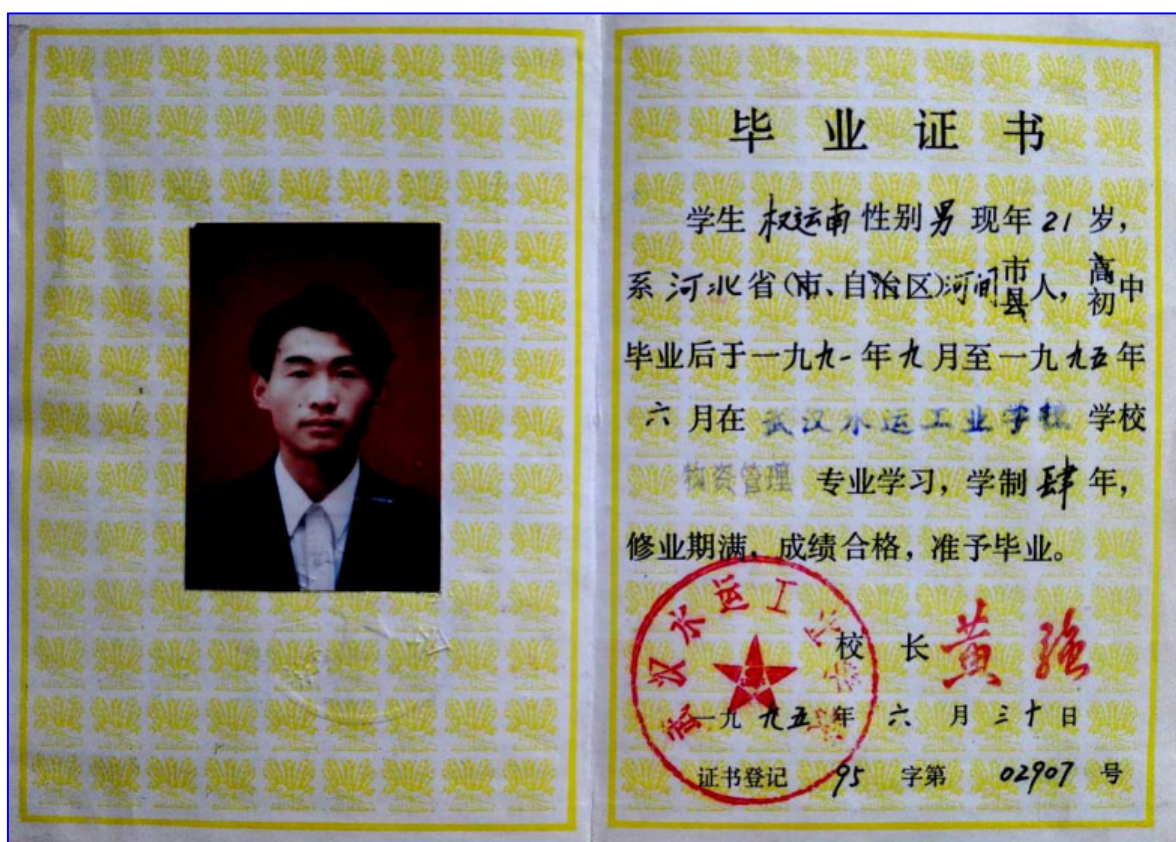 毕业证书
学生 权运南 性别 男 现年 21 岁，
系 河北 省（市、自治区）河间 市县 人，高初中
毕业后于一九九一年九月至一九九五年
六月在 武汉水运工业学校 学校
物资管理 专业学习，学制 肆 年，
修业期满，成绩合格，准予毕业。
武汉水运工业学校
校 长 黄强
一九九五年 六 月 三十 日
证书登记 95 字第 02907 号